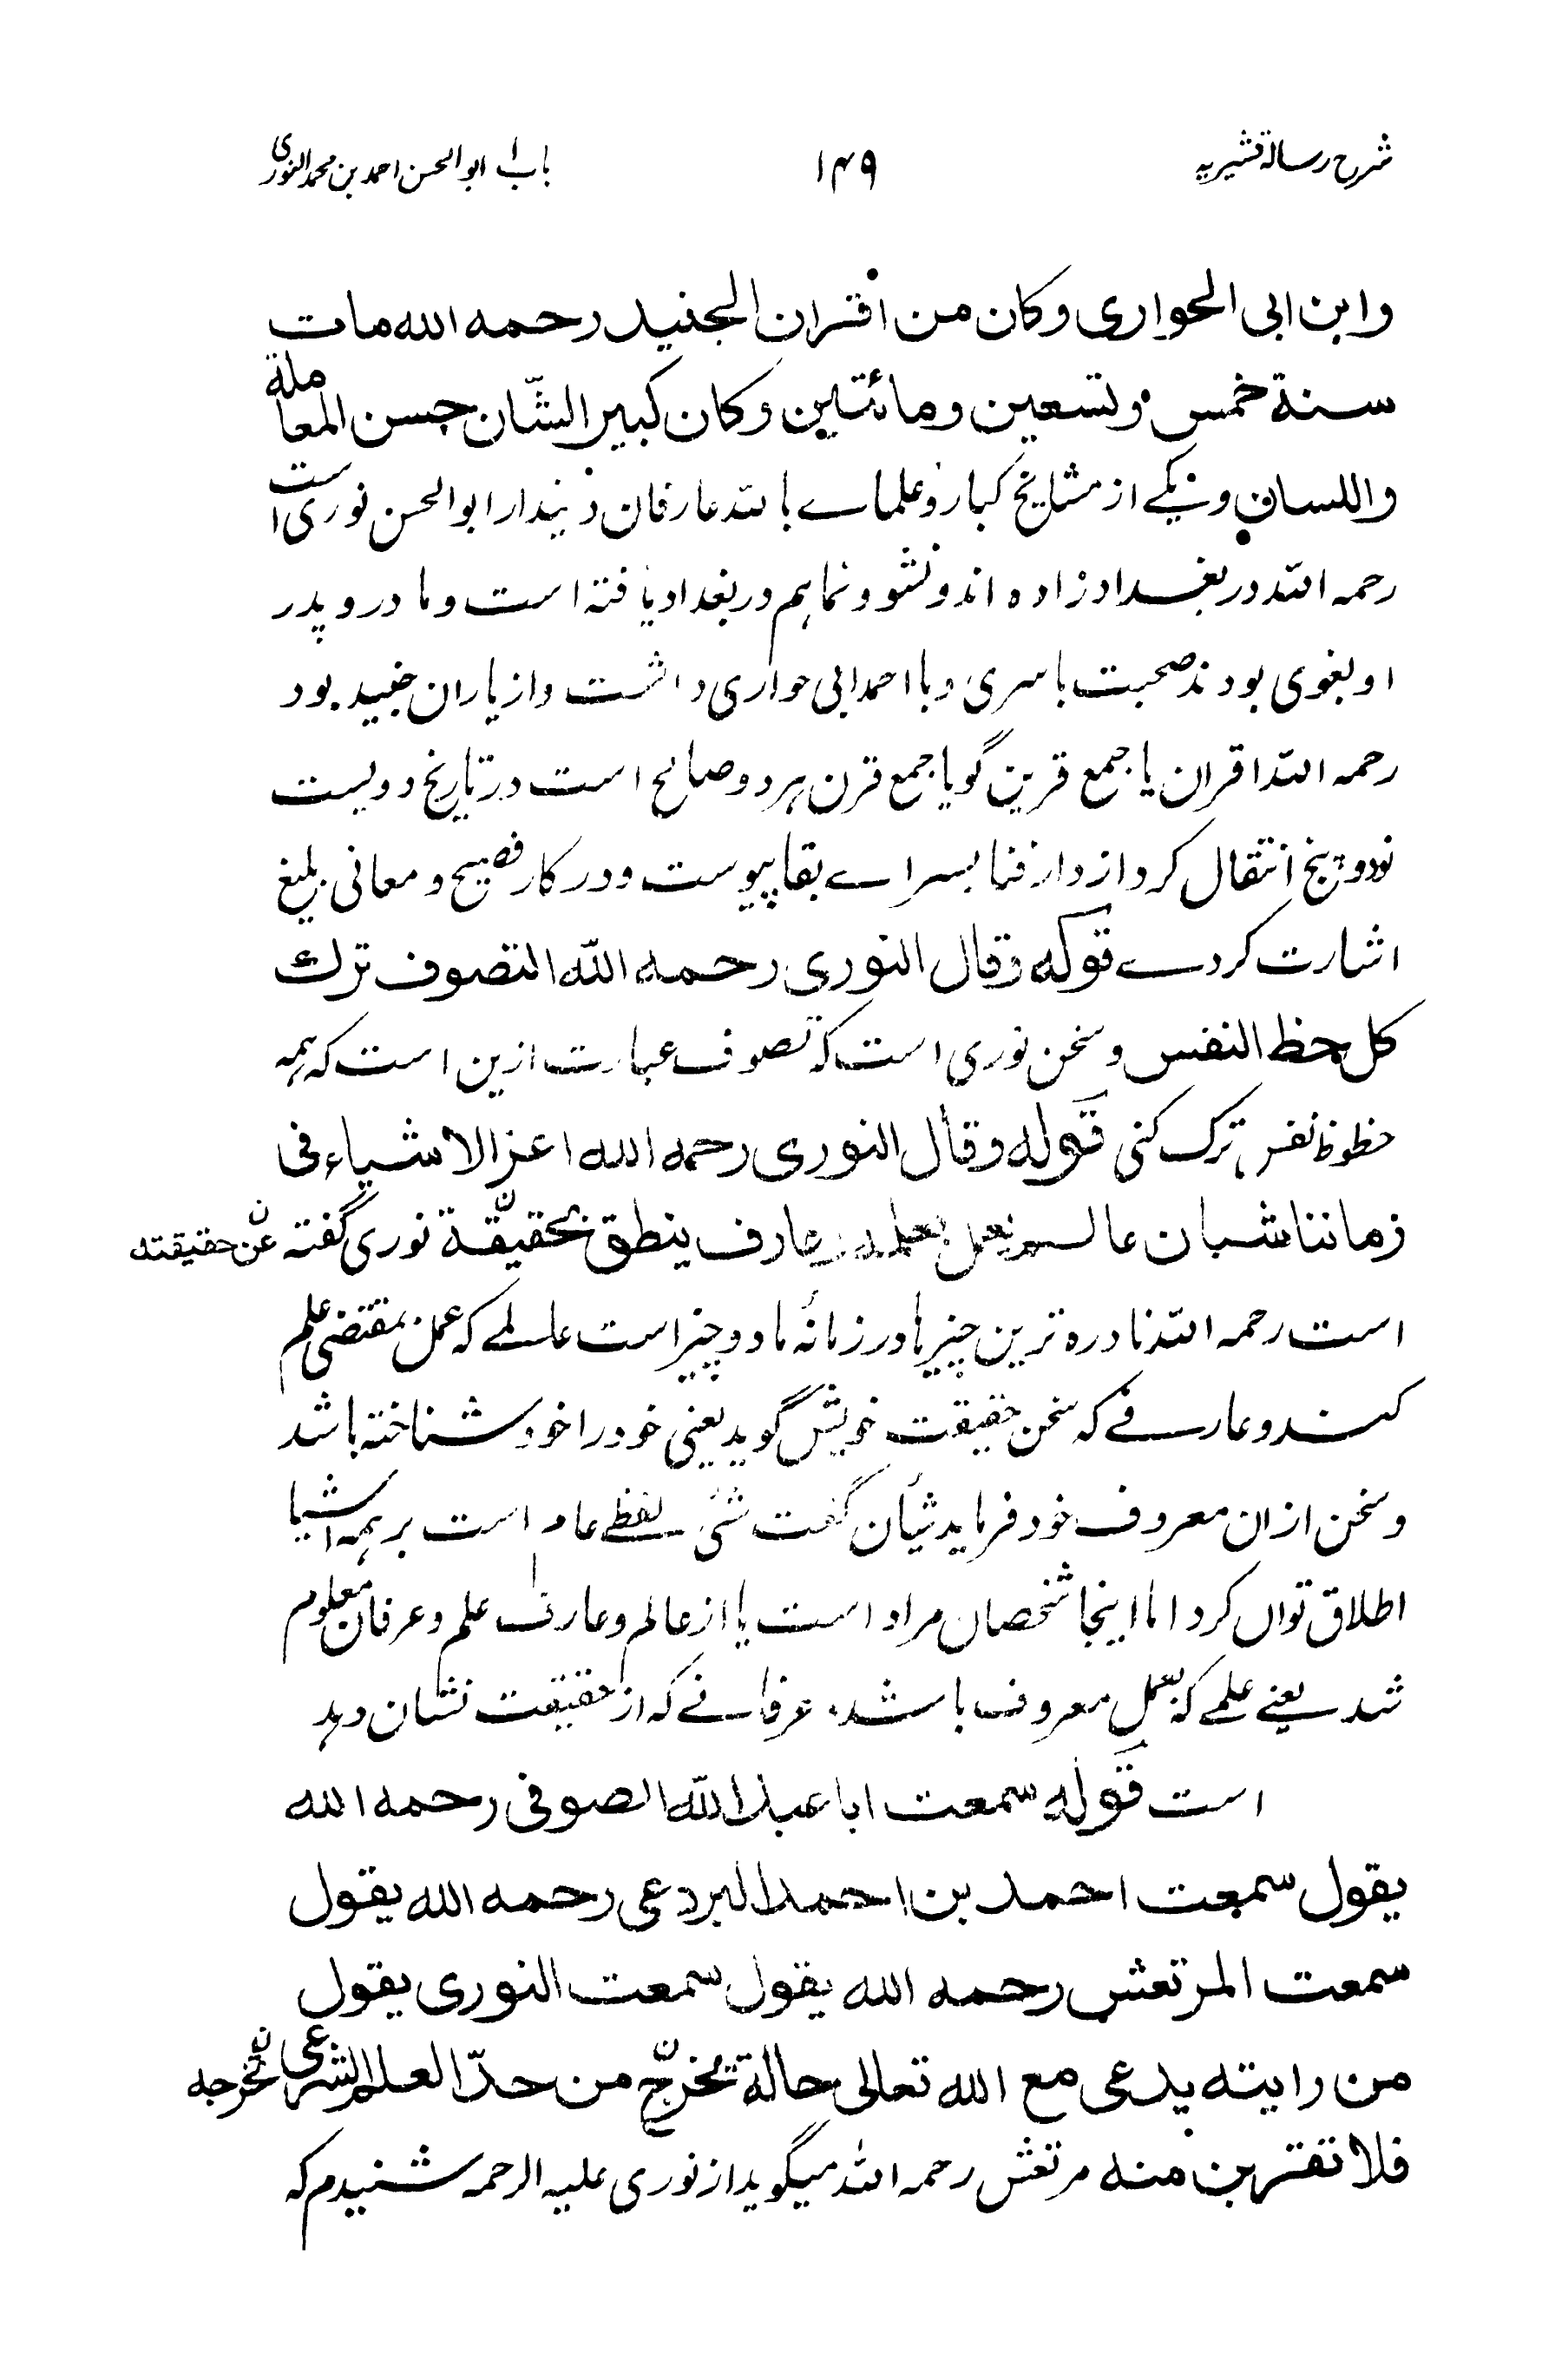 شرح رسالة قشیریه ۱۴۹ باب ۱ ابوالحسن احمد بن محمد النوری
وابن ابی الحواری وکان من اقران الجنید رحمه الله مات
سنة خمس وتسعین ومائتین وکان کبیر الشان حسن المعاملة
واللسان و یکے از مشایخ کبار و علماے باللہ عارفان دیندار ابوالحسن نوری است
رحمہ اللہ در بغداد زادہ اند و نشو و نما ہم در بغداد یافتہ است و مادر و پدر
او بغوی بودند صحبت با سری و با احمد ابی حواری داشت و از یاران جنید بود
رحمہ اللہ اقران یا جمع قرین گویا جمع قرن ہر دو صالح است در تاریخ دویست
نود و پنج انتقال کرد از دار فنا بسراے بقا پیوست و در کار فصیح و معانی بلیغ
اشارت کردے قوله وقال النوری رحمه الله التصوف ترك
کل حظ النفس و سخن نوری است کہ تصوف عبارت ازین است کہ ہمہ
حظوظ نفس ترک کنی قوله وقال النوری رحمه الله اعز الاشیاء فی
زماننا شیان عالم یعمل بعلمه وعارف ینطق بحقیقة نوری گفتہ ن عن حقیقته
است رحمہ اللہ نادرہ ترین چیزہا در زمانہ ما دو چیز است عالمے کہ عمل بمقتضی علم
کند و عارفے کہ سخن حقیقت خویش گوید یعنی خود را خود شناختہ باشد
و سخن ازان معروف خود فرماید شیأن گفت شئ لفظے عام است بر ہمہ اشیا
اطلاق تواں کرد اما اینجا شخصان مراد است یا از عالم و عارف علم و عرفان معلوم
شد یعنے علمے کہ بعمل معروف باشد، عرفانے کہ از حقیقت نشان دہد
است قوله سمعت ابا عبد الله الصوفی رحمه الله
یقول سمعت احمد بن احمد البردعی رحمه الله یقول
سمعت المرتعش رحمه الله یقول سمعت النوری یقول
من رایته یدعی مع الله تعالی حالة تخرج من حدّ العلم الشرعی ن تخرجه
فلا تقتربن منه مرتعش رحمہ اللہ میگوید از نوری علیہ الرحمہ شنیدم کہ